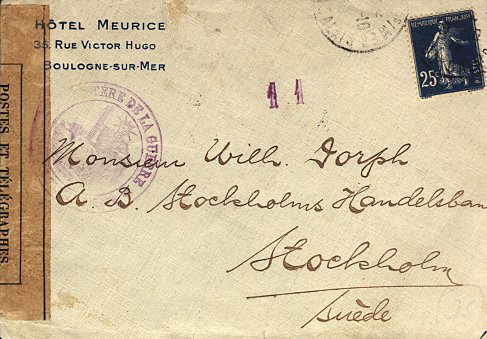 HÔTEL MEURICE
35, RUE VICTOR HUGO
BOULOGNE-SUR-MER
POSTES ET TÉLÉGRAPHES
RÉPUBLIQUE FRANÇAISE
25c
POSTES
11
MINISTÈRE DE LA GUERRE
Monsieur Wilh. Dorph
A. B. Stockholms Handelsban
Stockholm
Suède